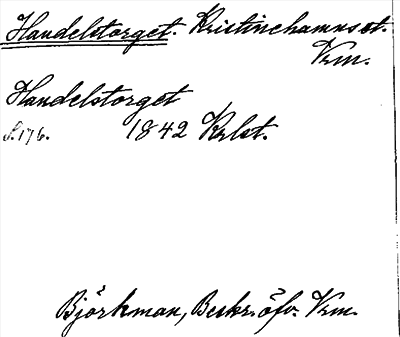 Handelstorget. Kristinehamns st.
Vrm.
Handelstorget
S. 176. 1842 Krlst.
Björkman, Beskr. öfv. Vrm.